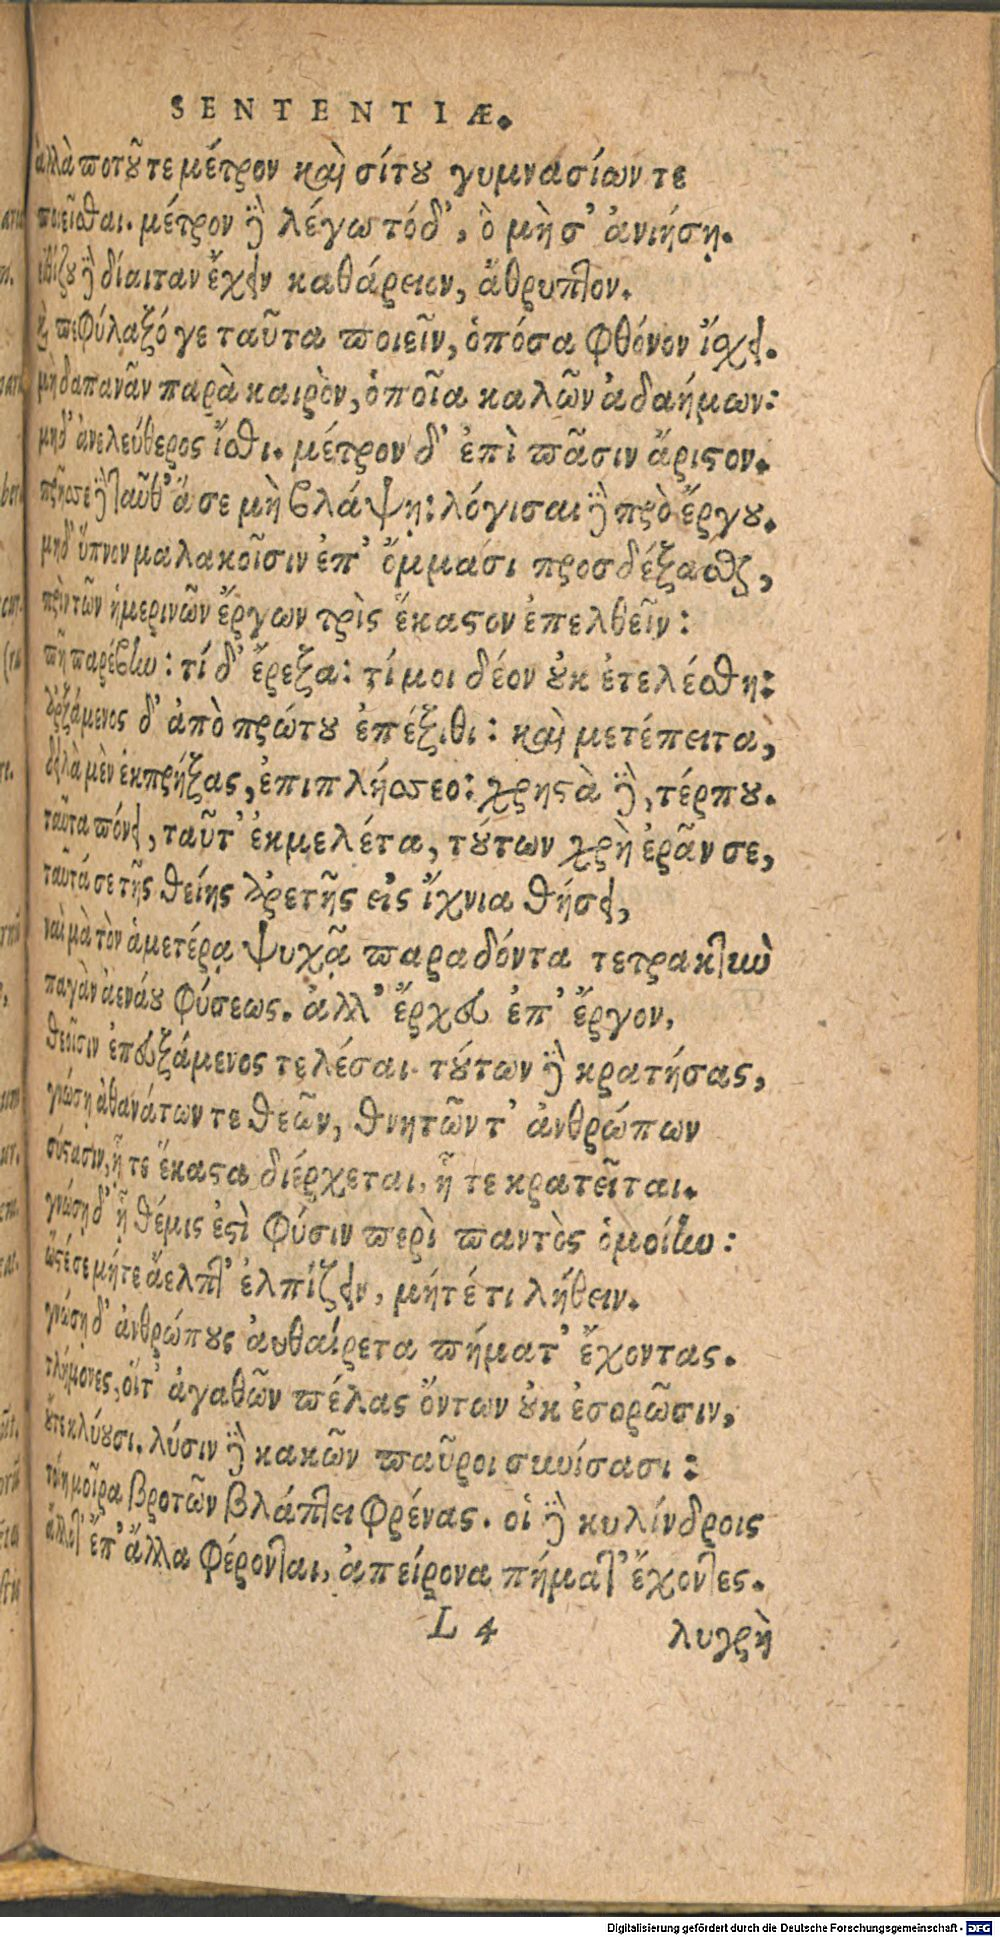 SENTENTIÆ.
ἀλλὰ ποτοῦ τε μέτρον καὶ σίτου γυμνασίων τε
ποιεῖσθαι. μέτρον δὲ λέγω τόδ', ὃ μὴ σ' ἀνιήσῃ.
εἰθίζου δὲ δίαιταν ἔχειν καθάρειον, ἄθρυπτον.
καὶ πεφύλαξό γε ταῦτα ποιεῖν, ὁπόσα φθόνον ἴσχει.
μὴ δαπανᾶν παρὰ καιρὸν, ὁποῖα καλῶν ἀδαήμων:
μηδ' ἀνελεύθερος ἴσθι. μέτρον δ' ἐπὶ πᾶσιν ἄριστον.
πρῆσσε δὲ ταῦθ' ἅ σε μὴ βλάψῃ: λόγισαι δὲ πρὸ ἔργου.
μηδ' ὕπνον μαλακοῖσιν ἐπ' ὄμμασι προσδέξασθαι,
πρὶν τῶν ἡμερινῶν ἔργων τρὶς ἕκαστον ἐπελθεῖν:
πῆ παρέβην: τί δ' ἔρεξα: τί μοι δέον οὐκ ἐτελέσθη:
ἀρξάμενος δ' ἀπὸ πρώτου ἐπέξιθι: καὶ μετέπειτα,
δειλὰ μὲν ἐκπρήξας, ἐπιπλήσσεο: χρηστὰ δὲ, τέρπου.
ταῦτα πόνει, ταῦτ' ἐκμελέτα, τούτων χρὴ ἐρᾶν σε,
ταῦτά σε τῆς θείης ἀρετῆς εἰς ἴχνια θήσει,
ναὶ μὰ τὸν ἁμετέρᾳ ψυχᾷ παραδόντα τετρακτὺν
παγὰν ἀενάου φύσεως. ἀλλ' ἔρχευ ἐπ' ἔργον,
θεοῖσιν ἐπευξάμενος τελέσαι. τούτων δὲ κρατήσας,
γνώσῃ ἀθανάτων τε θεῶν, θνητῶν τ' ἀνθρώπων
σύστασιν, ᾗ τε ἕκαστα διέρχεται, ᾗ τε κρατεῖται.
γνώσῃ δ' ᾗ θέμις ἐστὶ φύσιν περὶ παντὸς ὁμοίην:
ὥστέ σε μήτε ἄελπτ' ἐλπίζειν, μήτέ τι λήθειν.
γνώσῃ δ' ἀνθρώπους αὐθαίρετα πήματ' ἔχοντας.
τλήμονες, οἵτ' ἀγαθῶν πέλας ὄντων οὐκ ἐσορῶσιν,
οὔτε κλύουσι. λύσιν δὲ κακῶν παῦροι συνίσασι:
τοίη μοῖρα βροτῶν βλάπτει φρένας. οἱ δὲ κυλίνδροις
ἄλλοτ' ἐπ' ἄλλα φέρονται, ἀπείρονα πήματ' ἔχοντες.
L 4 λυγρὴ
Digitalisierung gefördert durch die Deutsche Forschungsgemeinschaft - DFG